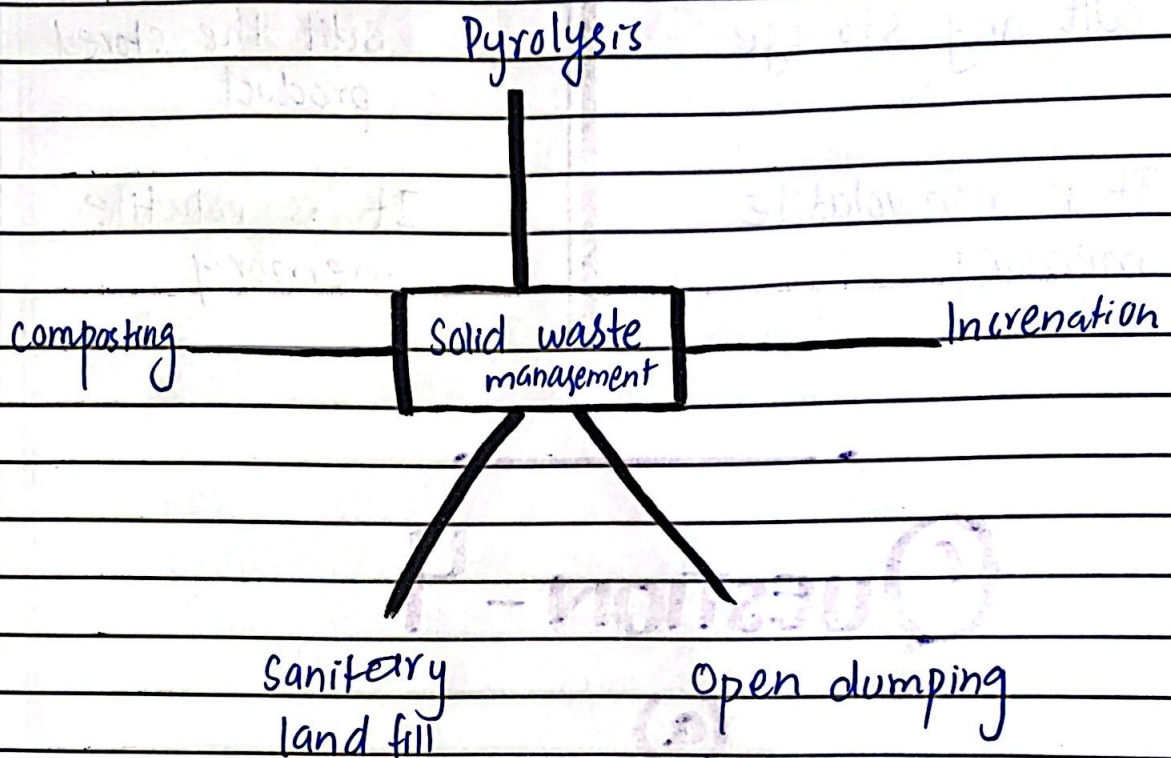 Pyrolysis
composting
Solid waste
management
Increnation
Sanitary
land fill
Open dumping